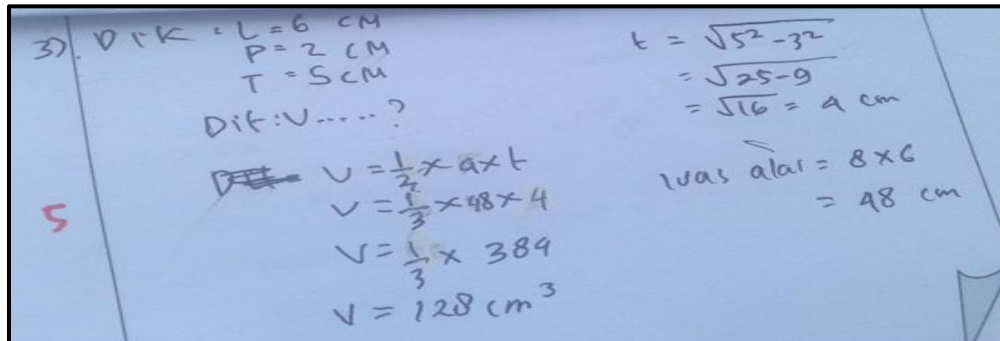 3). Dik : L = 6 CM
P = 2 CM
T = 5 CM
Dit : V .....?
V = 1/2 x a x t
V = 1/3 x 48 x 4
V = 1/3 x 384
V = 128 cm³
5
t = √5² - 3²
= √25 - 9
= √16 = 4 cm
luas alas = 8 x 6
= 48 cm